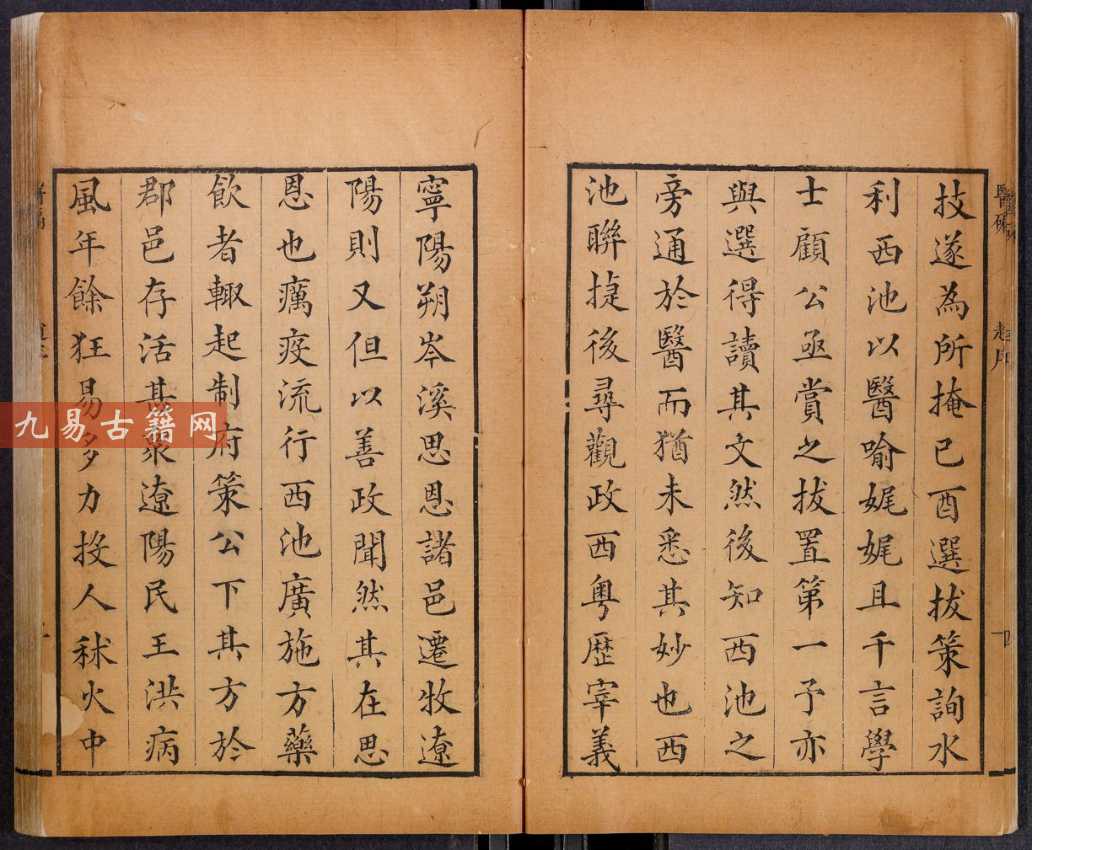 技遂為所掩已酉選拔策詢水
利西池以醫喻娓娓且千言學
士顧公亟賞之拔置第一予亦
與選得讀其文然後知西池之
旁通於醫而猶未悉其妙也西
池聯捷後尋觀政西粵歷宰義
寧陽朔岑溪思恩諸邑遷牧遼
陽則又但以善政聞然其在思
恩也癘疫流行西池廣施方藥
飲者輙起制府策公下其方於
郡邑存活甚眾遼陽民王洪病
風年餘狂易多力投人秫火中
九易古籍网